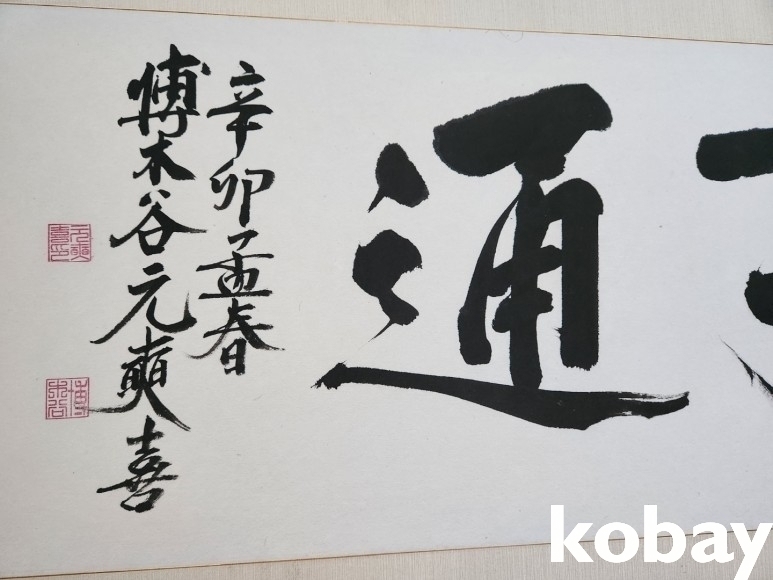 通
辛卯孟春
愽木谷元奭喜
kobay